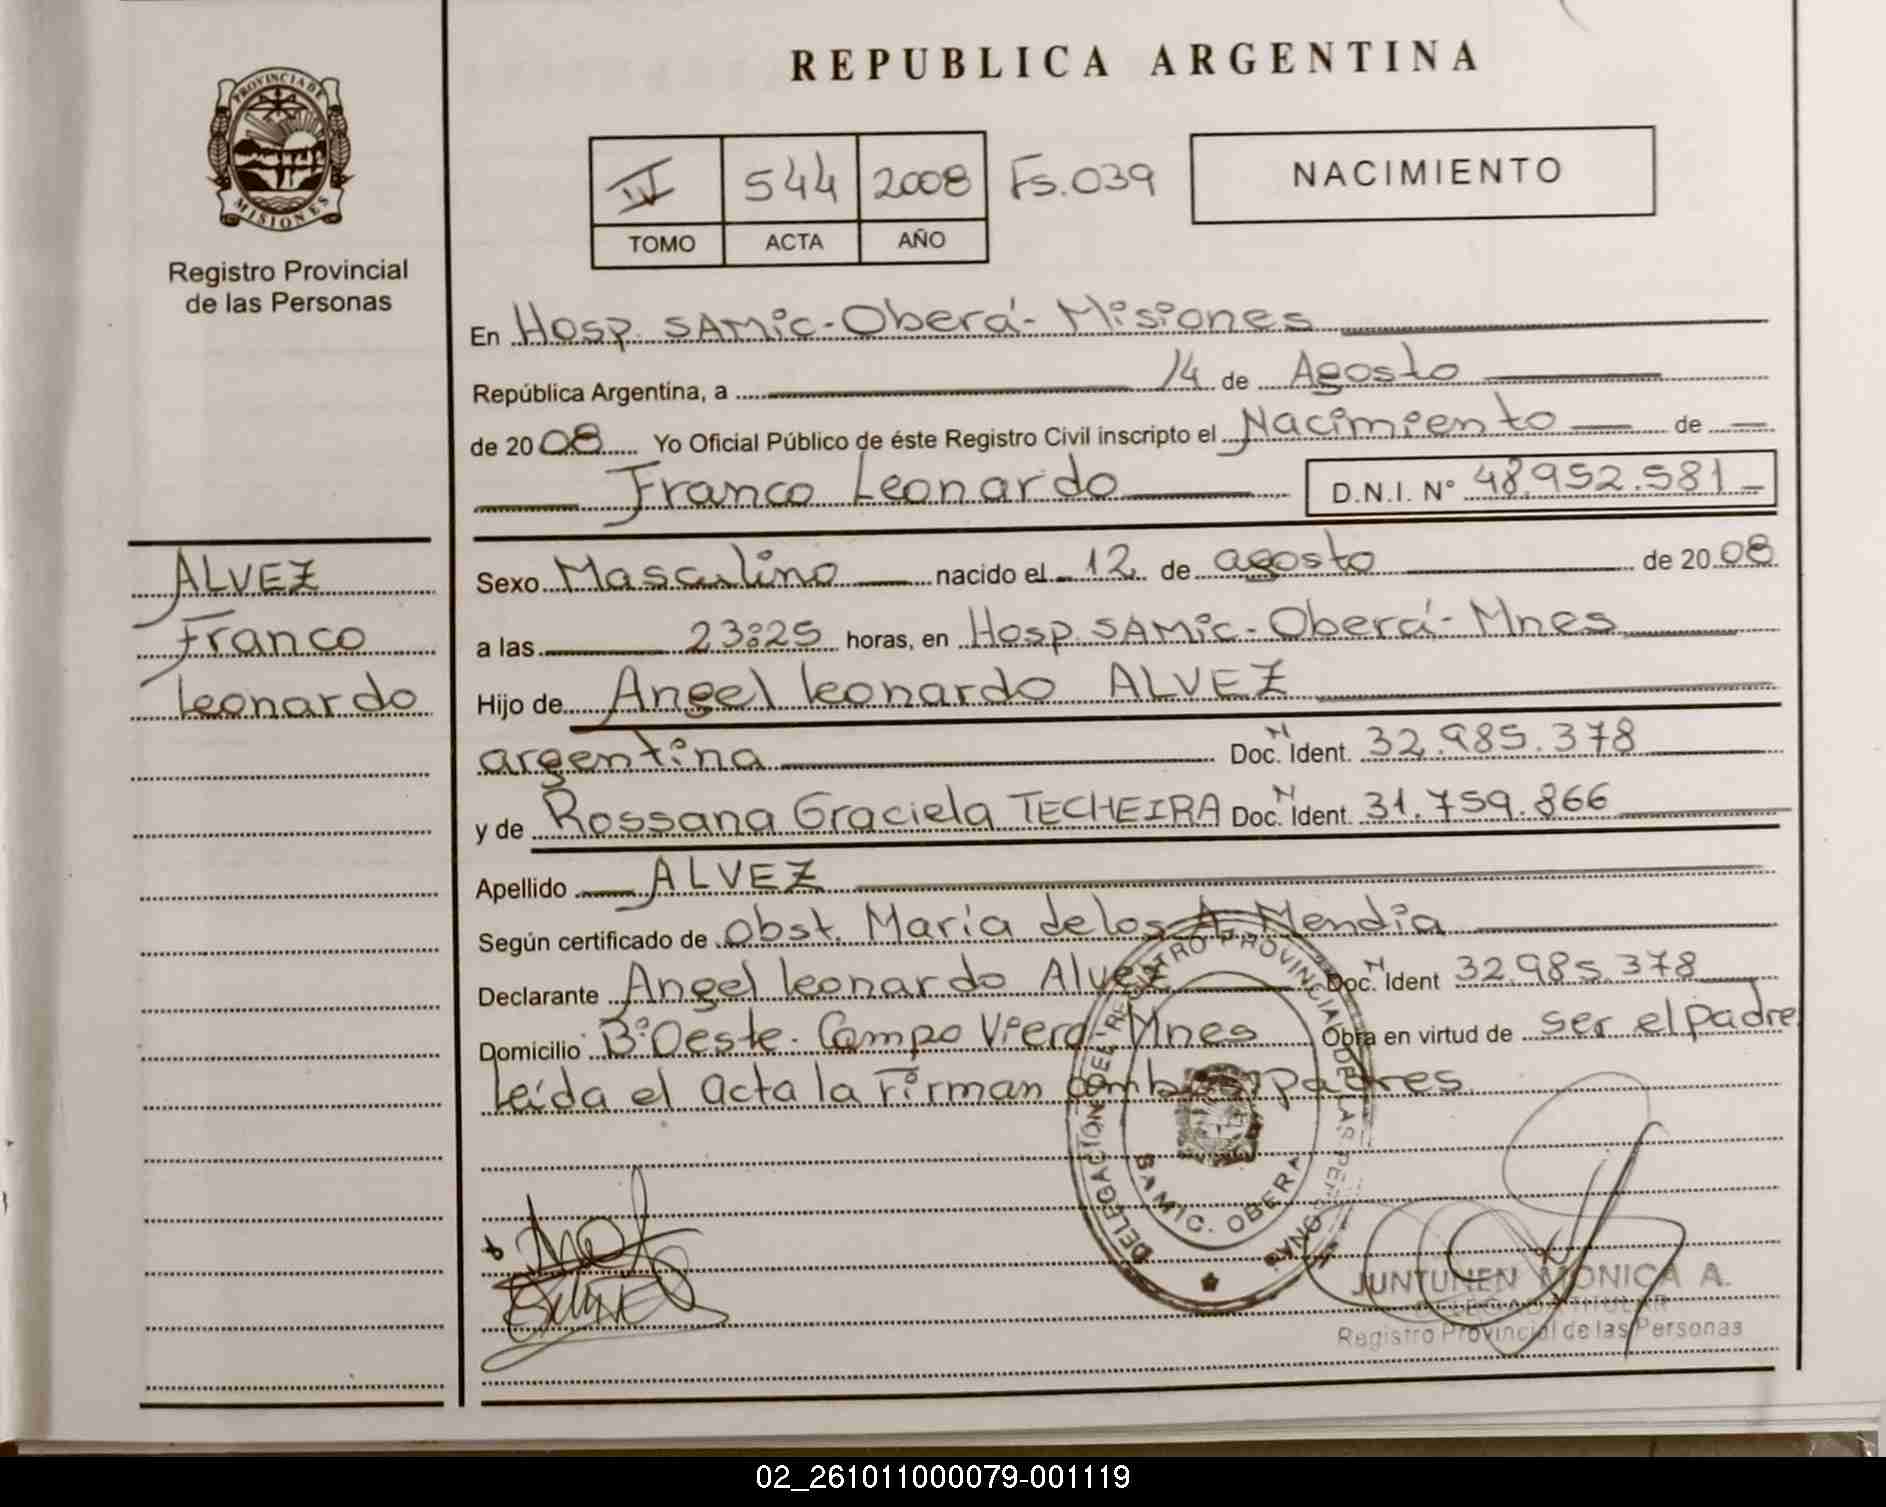 REPUBLICA ARGENTINA
PROVINCIA DE MISIONES
Registro Provincial
de las Personas
544 2008 Fs.039
TOMO ACTA AÑO
NACIMIENTO
En Hosp. SAMic-Oberá-Misiones
República Argentina, a 14 de Agosto
de 2008 Yo Oficial Público de éste Registro Civil inscripto el Nacimiento de
Franco Leonardo D.N.I. N° 48.952.581
ALVEZ
Franco
Leonardo
Sexo Masculino nacido el 12 de agosto de 2008
a las 23:25 horas, en Hosp. SAMic-Oberá-Mnes
Hijo de Angel Leonardo ALVEZ
argentina Doc. N Ident. 32.985.378
y de Rossana Graciela TECHEIRA Doc. N Ident. 31.759.866
Apellido ALVEZ
Según certificado de Obst. María de los A. Mendia
Declarante Angel Leonardo Alvez Doc. N Ident 32.985.378
Domicilio B° Oeste. Campo Viera-Mnes Obra en virtud de ser el padre
Leída el acta la Firman ambos padres
DELEGACION DEL REGISTRO PROVINCIAL DE LAS PERSONAS
SAMIC. OBERA
JUNTUNEN MONICA A.
DELEGADA TITULAR
Registro Provincial de las Personas
02_261011000079-001119